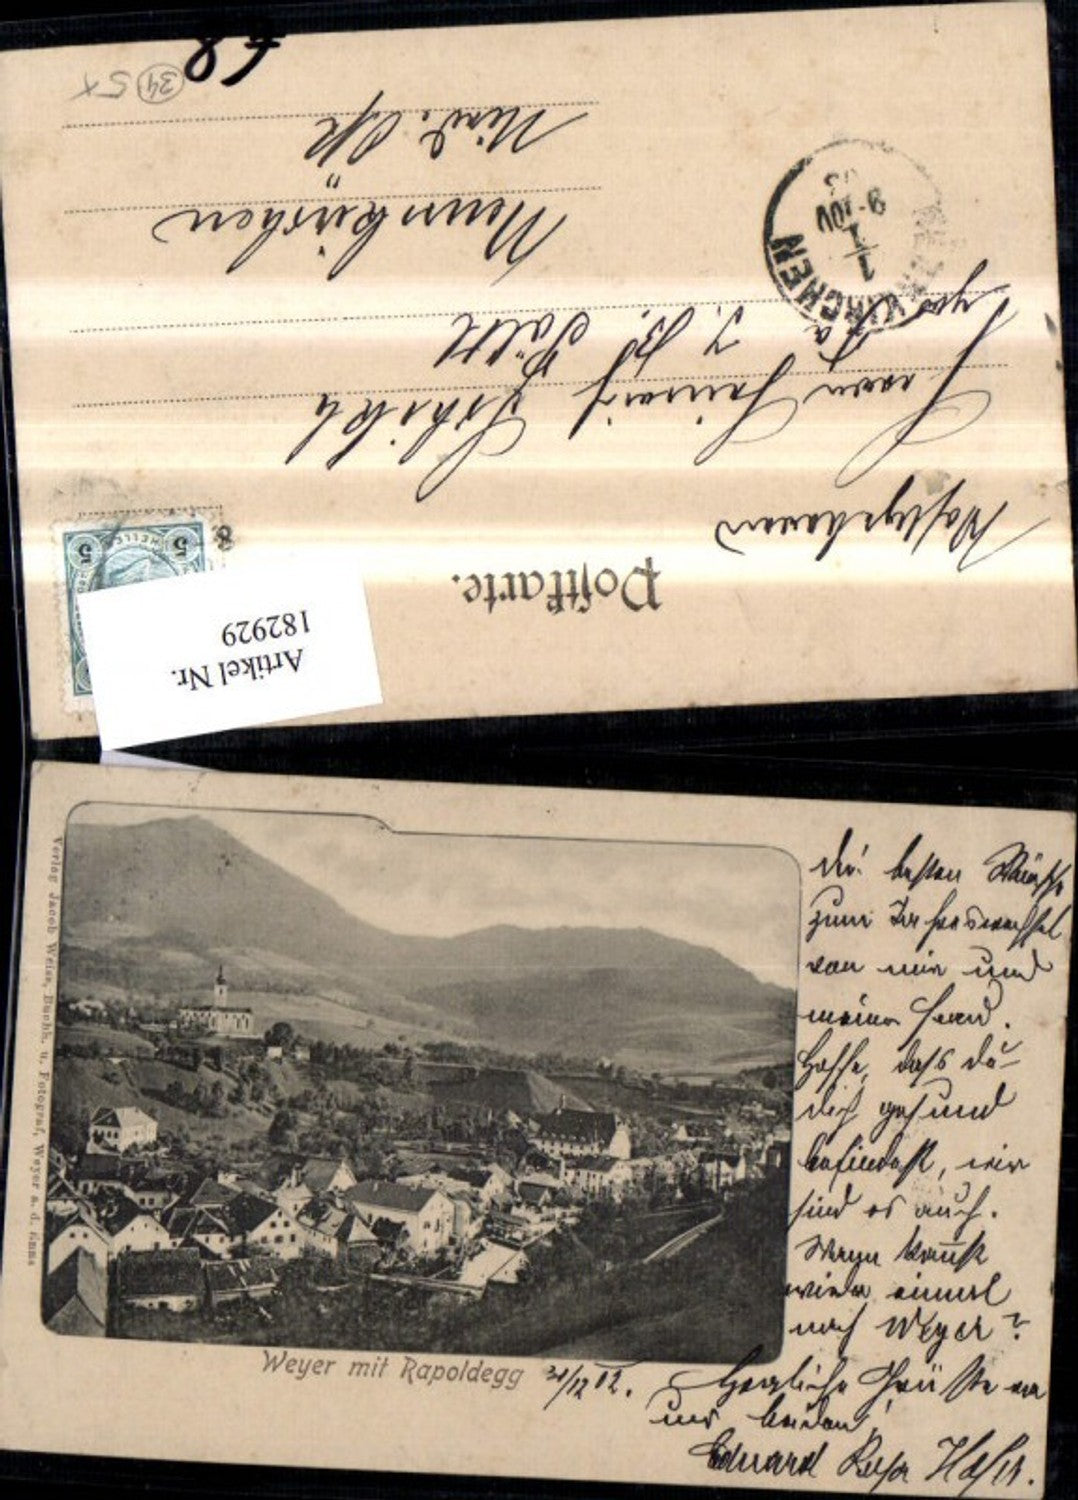 Postkarte.
Wohlgeboren
Herrn Heinrich Schikh
p. Ad. J. B. Pölzl
Neunkirchen
Nied. Öst
NEUNKIRCHEN
1/1
9-10V
03
5 HELLER 5
Artikel Nr.
182929
34 5x
68
Verlag Jacob Weiss, Buchh. u. Fotograf, Weyer a. d. Enns
Weyer mit Rapoldegg
31/12 02.
Die besten Wünsche
zum Jahreswechsel
von mir und
meiner Frau.
Hoffe, dass du
dich gesund
befindest, wir
sind es auch.
Wann kommst
wieder einmal
nach Weyer?
Herzliche Grüße von
uns beiden!
Eduard Hafer.